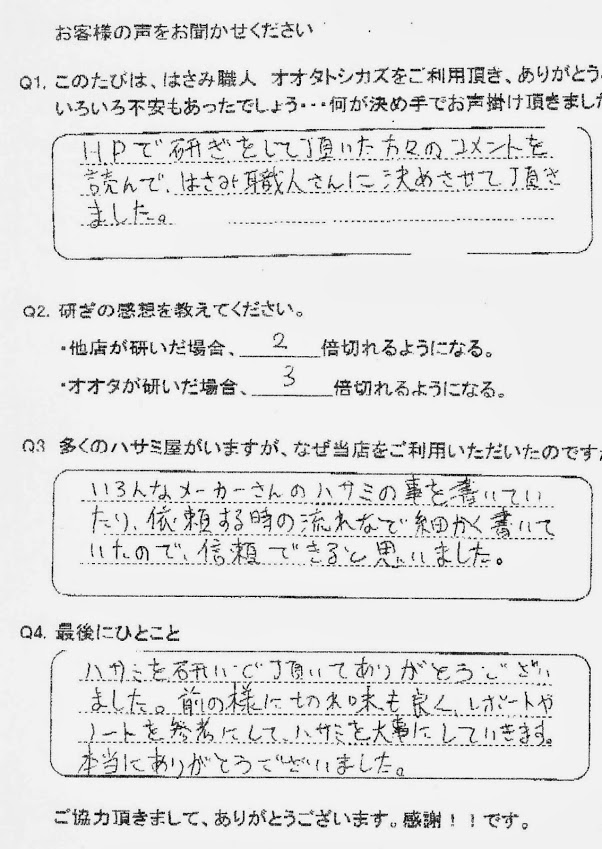 お客様の声をお聞かせください
Q1. このたびは、はさみ職人 オオタトシカズをご利用頂き、ありがとう
いろいろ不安もあったでしょう・・・何が決め手でお声掛け頂きました
HPで研ぎをして頂いた方々のコメントを
読んで、はさみ職人さんに決めさせて頂き
ました。
Q2. 研ぎの感想を教えてください。
・他店が研いだ場合、2倍切れるようになる。
・オオタが研いだ場合、3倍切れるようになる。
Q3 多くのハサミ屋がいますが、なぜ当店をご利用いただいたのですか
いろんなメーカーさんのハサミの事を書いてい
たり、依頼する時の流れなど細かく書いて
いたので、信頼できると思いました。
Q4. 最後にひとこと
ハサミを研いで頂いてありがとうござい
ました。前の様に切れ味も良く、レポートや
ノートを参考にして、ハサミを大事にしていきます。
本当にありがとうございました。
ご協力頂きまして、ありがとうございます。感謝！！です。